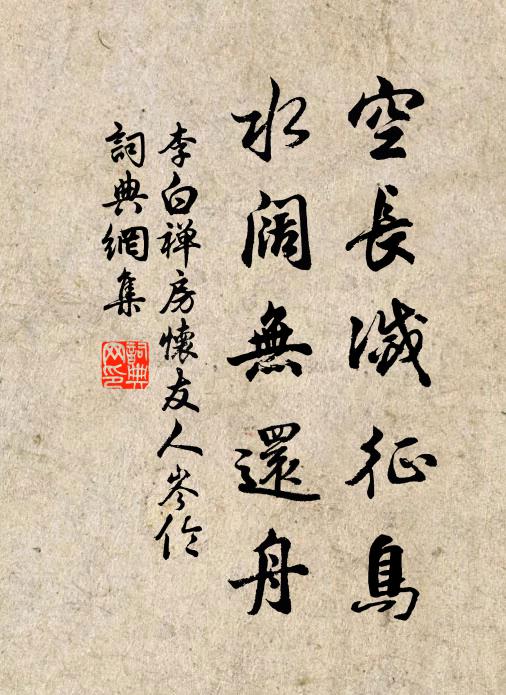 空長滅征鳥
水阔無還舟
李白禅房懷友人岑伦
詞典網集
詞典
网印